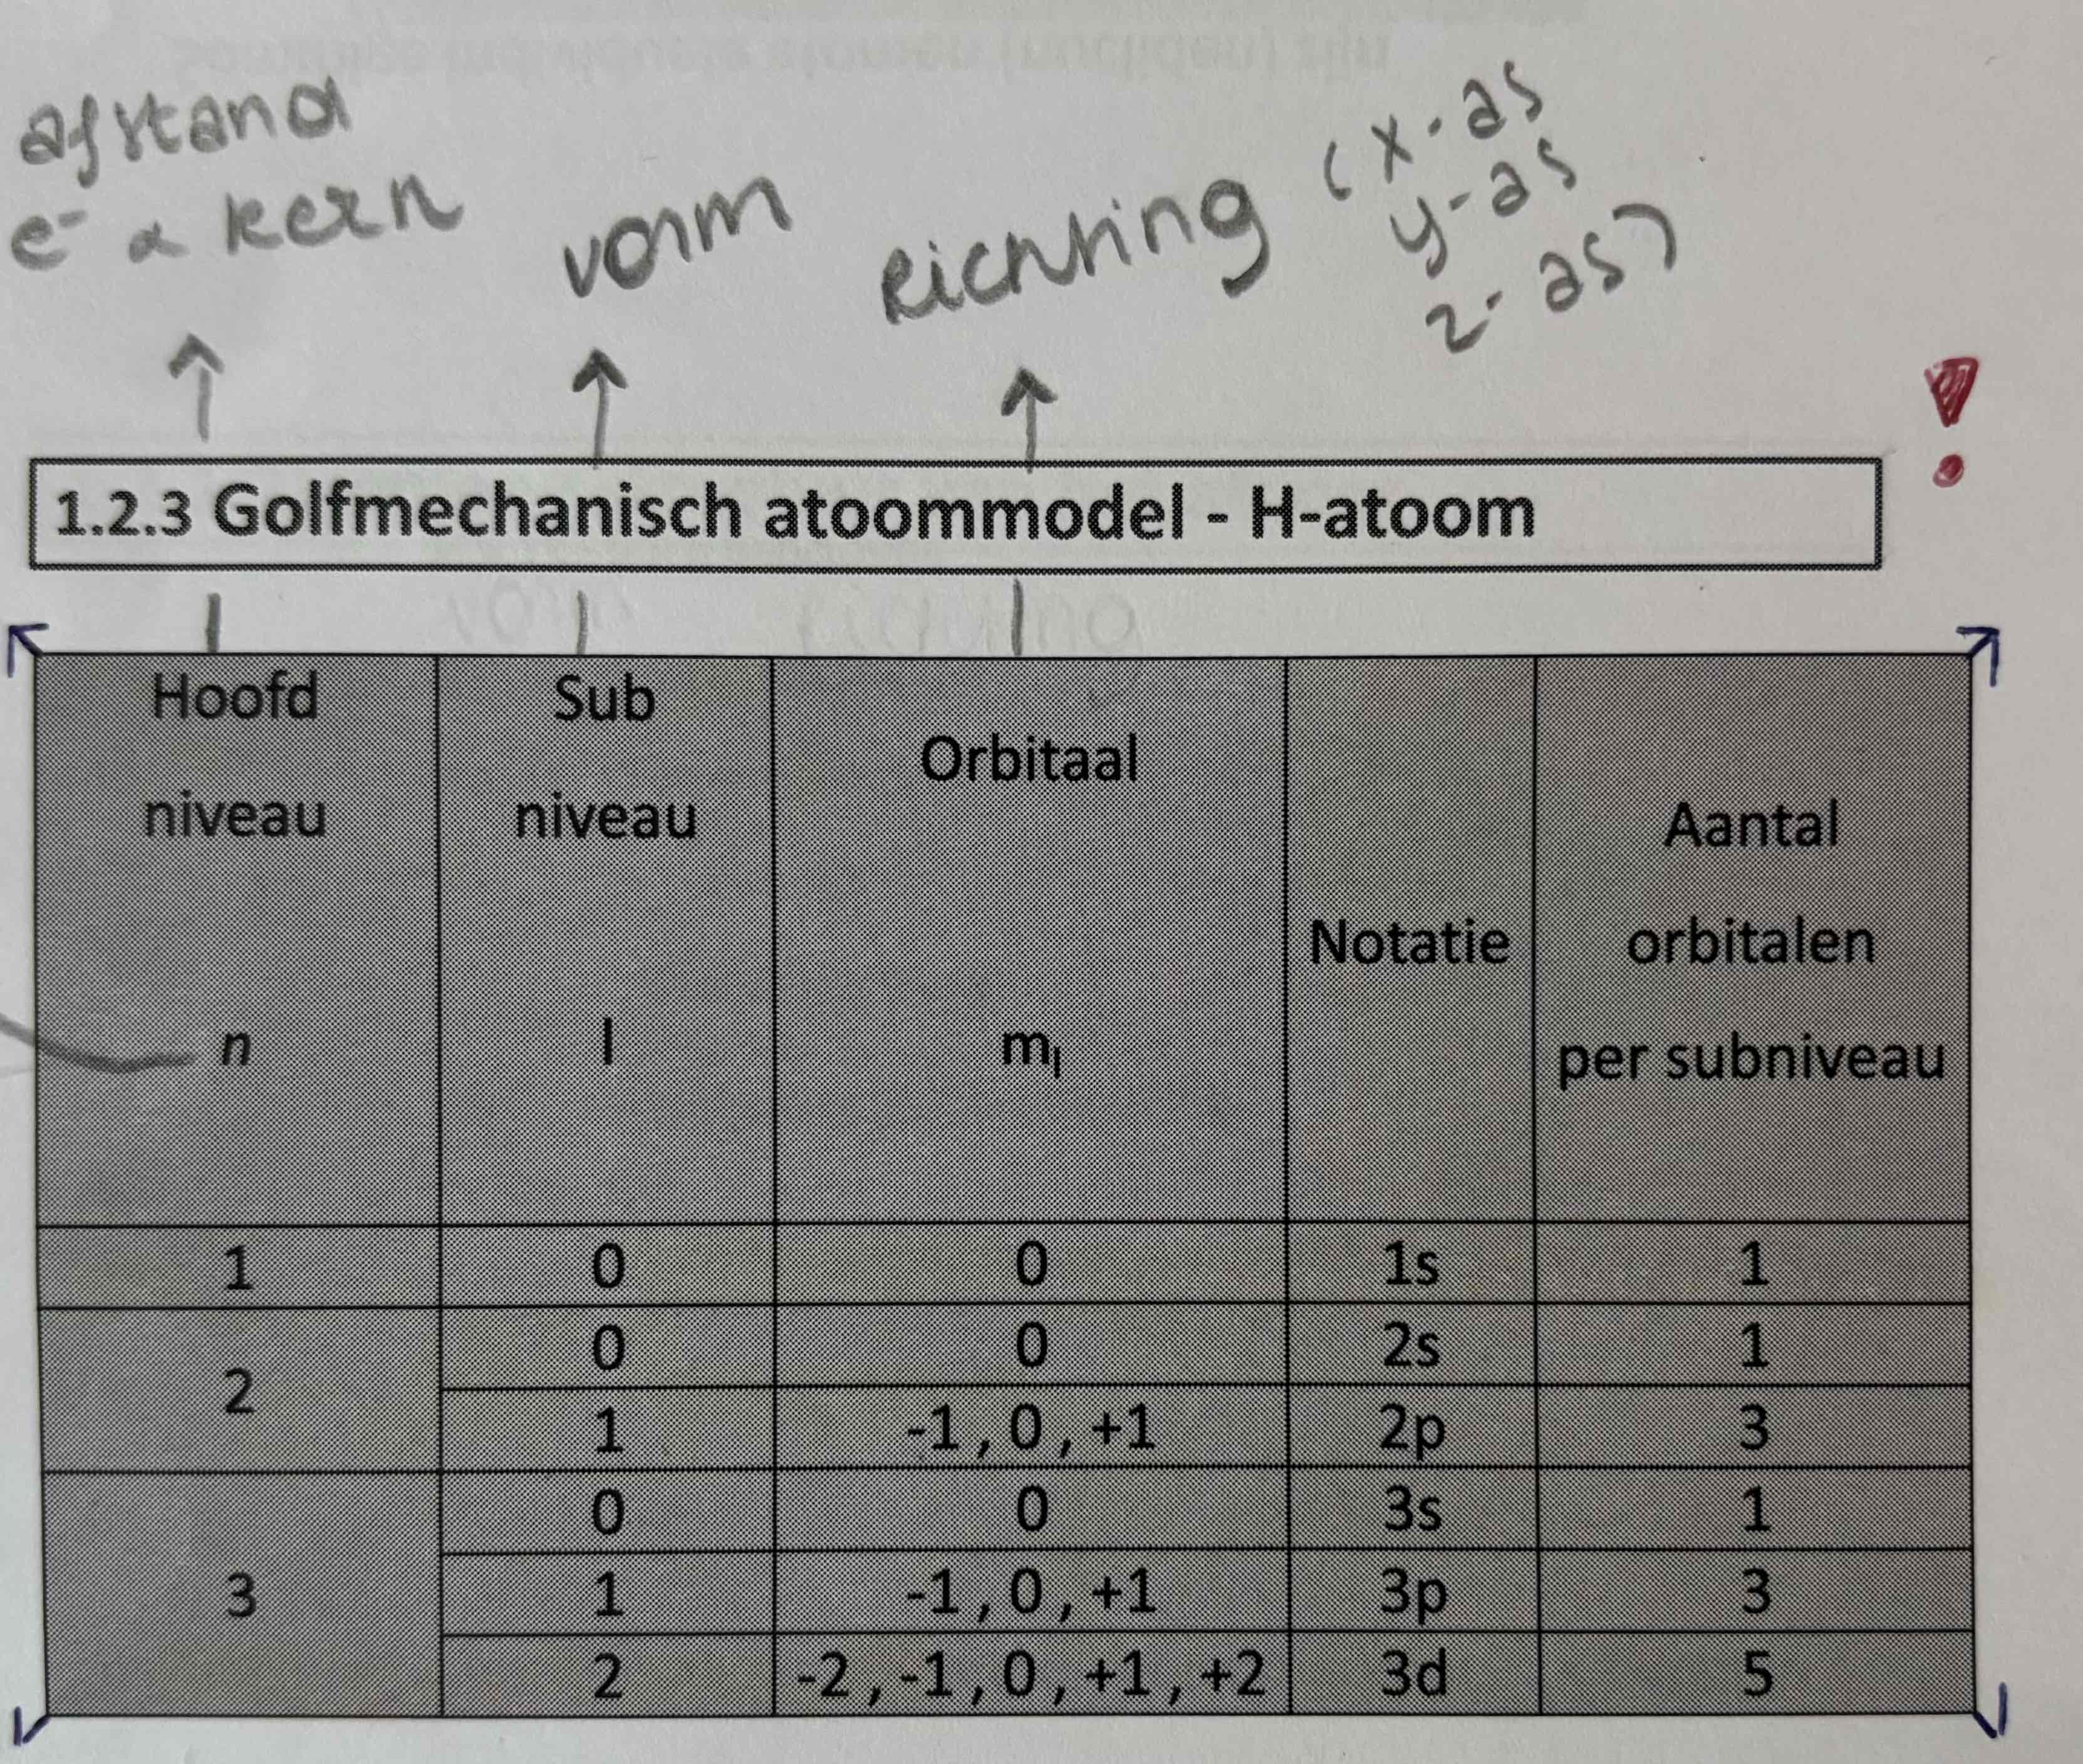 afstand
e⁻ α kern
vorm
Richting
(x-as
y-as
z-as)
!
1.2.3 Golfmechanisch atoommodel - H-atoom
Hoofd niveau n
Sub niveau l
Orbitaal mₗ
Notatie
Aantal orbitalen per subniveau
1 0 0 1s 1
2 0 0 2s 1
1 -1 , 0 , +1 2p 3
3 0 0 3s 1
1 -1 , 0 , +1 3p 3
2 -2 , -1 , 0 , +1 , +2 3d 5